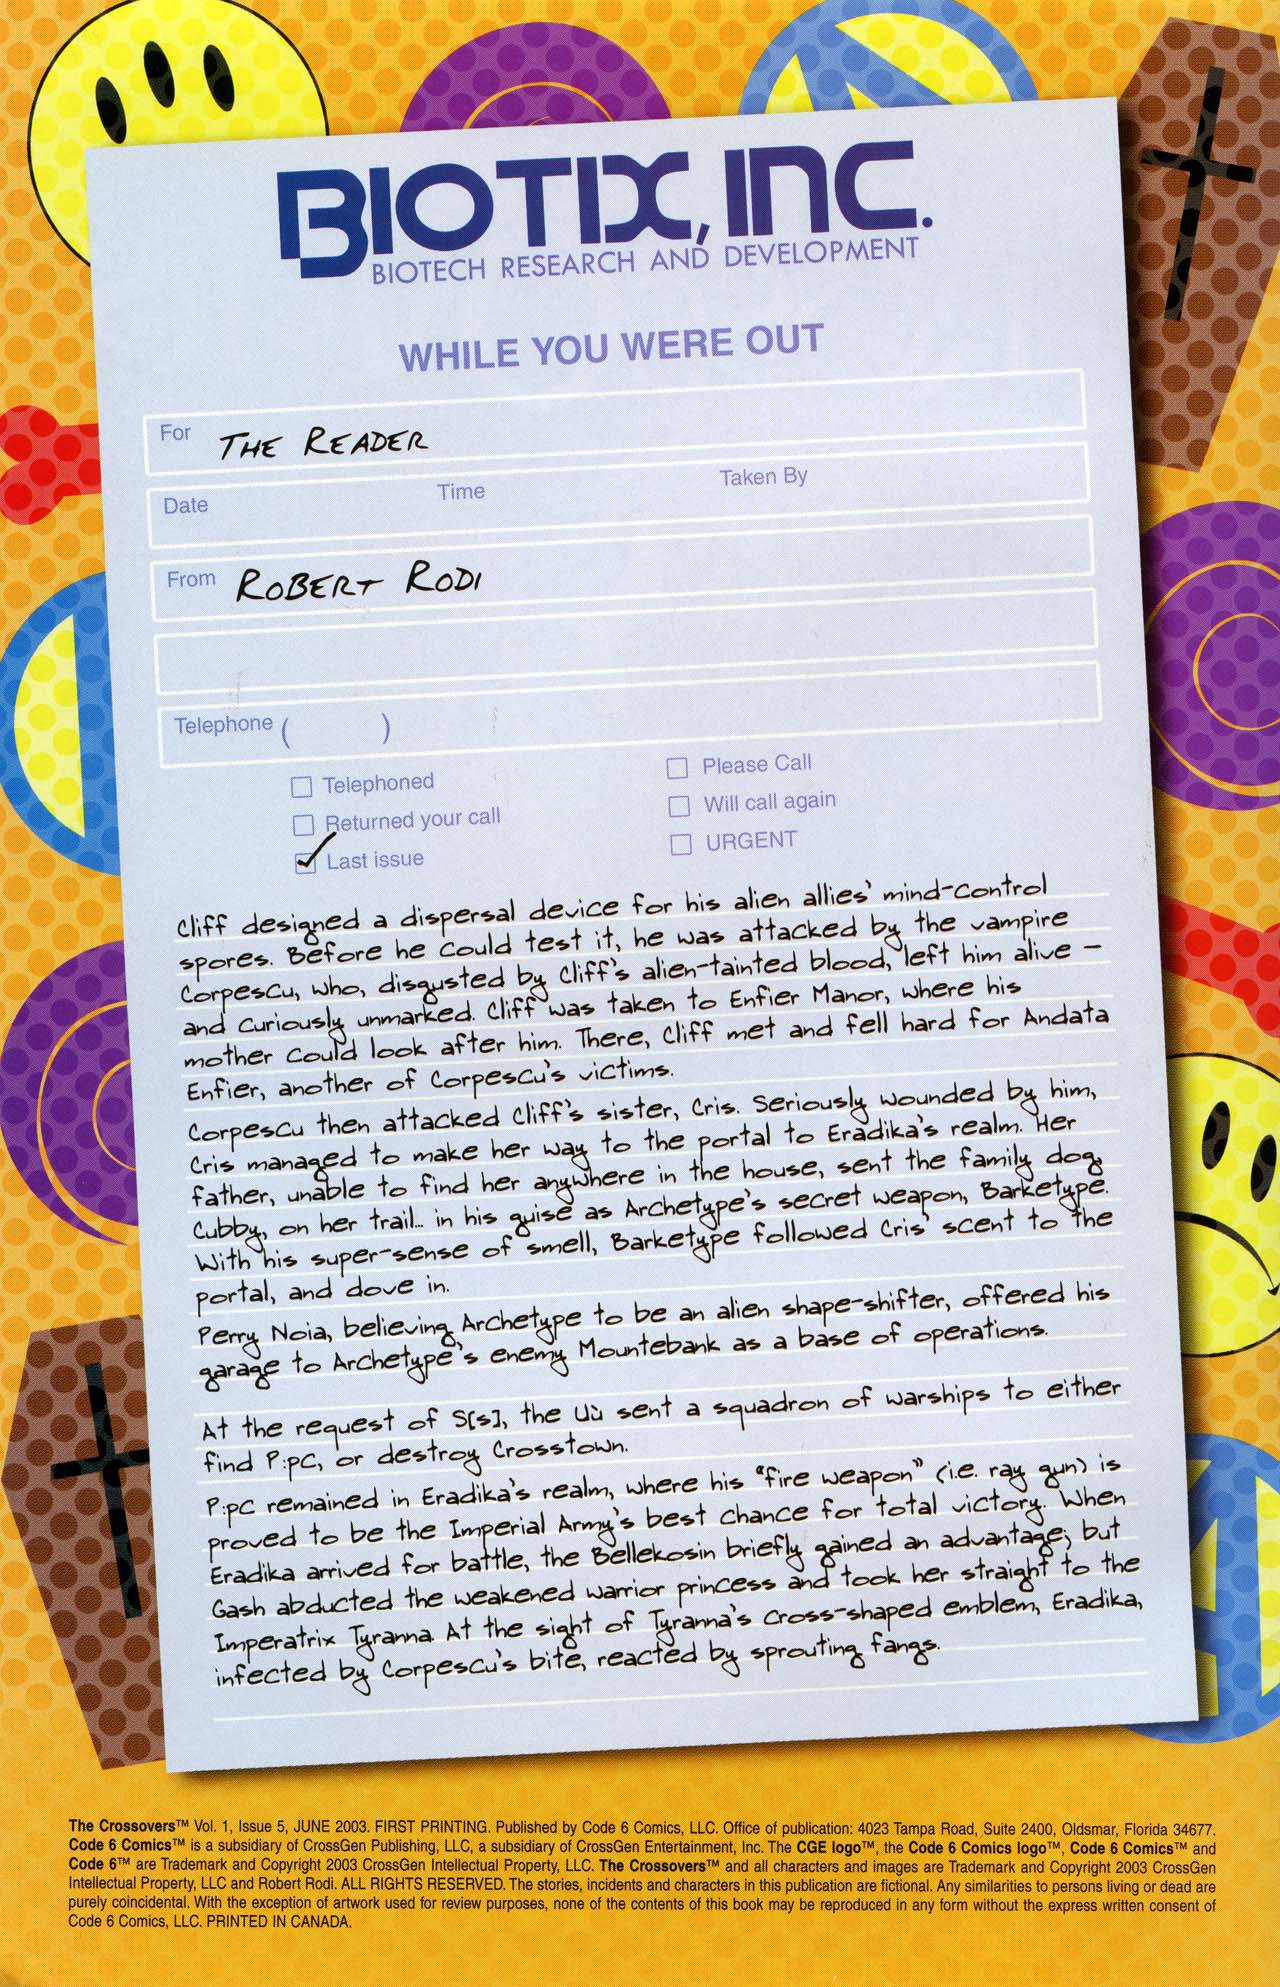 BIOTIX, INC.
BIOTECH RESEARCH AND DEVELOPMENT
WHILE YOU WERE OUT
For THE READER
Date Time Taken By
From ROBERT RODI
Telephone ( )
Telephoned
Please Call
Returned your call
Will call again
Last issue
URGENT
Cliff designed a dispersal device for his alien allies' mind-control
spores. Before he could test it, he was attacked by the vampire
Corpescu, who, disgusted by Cliff's alien-tainted blood, left him alive –
and curiously unmarked. Cliff was taken to Enfier Manor, where his
mother could look after him. There, Cliff met and fell hard for Andata
Enfier, another of Corpescu's victims.
Corpescu then attacked Cliff's sister, Cris. Seriously wounded by him,
Cris managed to make her way to the portal to Eradika's realm. Her
father, unable to find her anywhere in the house, sent the family dog,
Cubby, on her trail... in his guise as Archetype's secret weapon, Barketype.
With his super-sense of smell, Barketype followed Cris' scent to the
portal, and dove in.
Perry Noia, believing Archetype to be an alien shape-shifter, offered his
garage to Archetype's enemy Mountebank as a base of operations.
At the request of S[s], the Uù sent a squadron of warships to either
find P:pC, or destroy Crosstown.
P:pC remained in Eradika's realm, where his "fire weapon" (i.e. ray gun) is
proved to be the Imperial Army's best chance for total victory. When
Eradika arrived for battle, the Bellekosin briefly gained an advantage; but
Gash abducted the weakened warrior princess and took her straight to the
Imperatrix Tyranna. At the sight of Tyranna's cross-shaped emblem, Eradika,
infected by Corpescu's bite, reacted by sprouting fangs.
The Crossovers™ Vol. 1, Issue 5, JUNE 2003. FIRST PRINTING. Published by Code 6 Comics, LLC. Office of publication: 4023 Tampa Road, Suite 2400, Oldsmar, Florida 34677.
Code 6 Comics™ is a subsidiary of CrossGen Publishing, LLC, a subsidiary of CrossGen Entertainment, Inc. The CGE logo™, the Code 6 Comics logo™, Code 6 Comics™ and
Code 6™ are Trademark and Copyright 2003 CrossGen Intellectual Property, LLC. The Crossovers™ and all characters and images are Trademark and Copyright 2003 CrossGen
Intellectual Property, LLC and Robert Rodi. ALL RIGHTS RESERVED. The stories, incidents and characters in this publication are fictional. Any similarities to persons living or dead are
purely coincidental. With the exception of artwork used for review purposes, none of the contents of this book may be reproduced in any form without the express written consent of
Code 6 Comics, LLC. PRINTED IN CANADA.